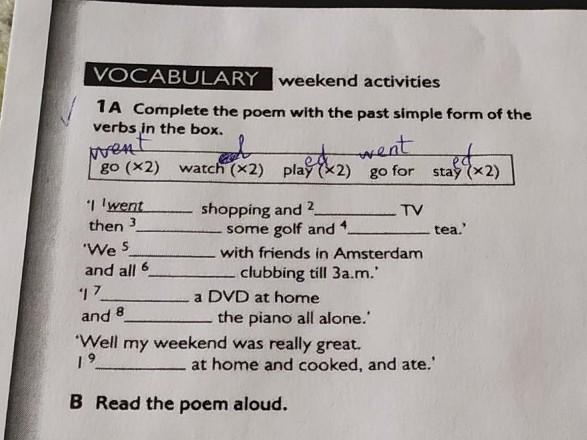 VOCABULARY weekend activities
1A Complete the poem with the past simple form of the
verbs in the box.
went ed ed went ed
go (×2) watch (×2) play (×2) go for stay (×2)
'I ¹went________ shopping and ²________ TV
then ³________ some golf and ⁴________ tea.'
'We ⁵________ with friends in Amsterdam
and all ⁶________ clubbing till 3a.m.'
'I ⁷________ a DVD at home
and ⁸________ the piano all alone.'
'Well my weekend was really great.
I ⁹________ at home and cooked, and ate.'
B Read the poem aloud.